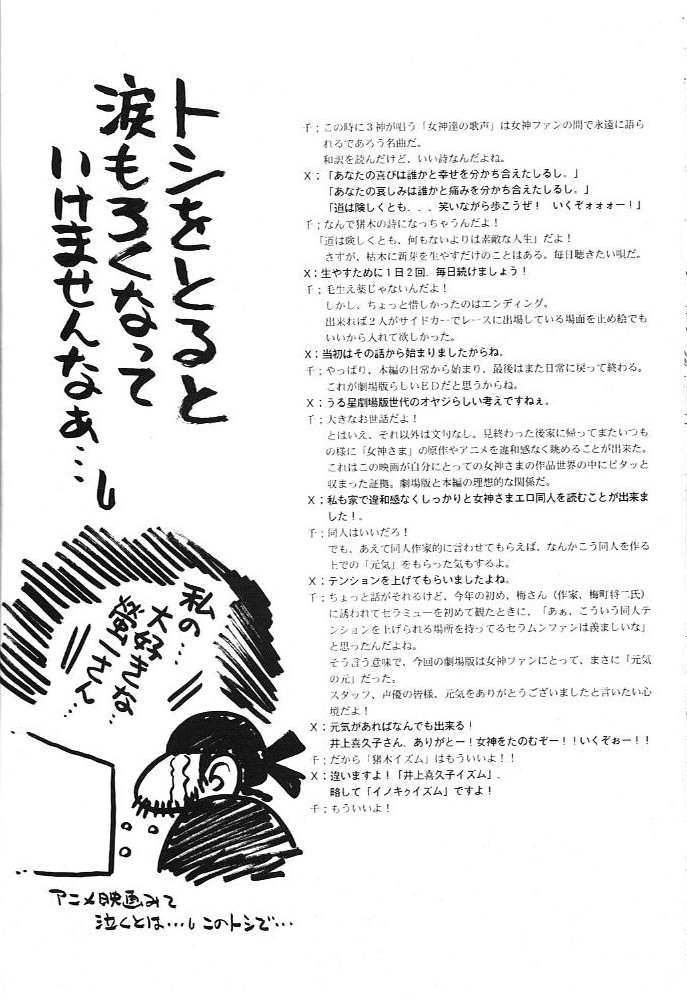 トシをとると
涙もろくなって
いけませんなぁ…
千；この時に３神が唱う「女神達の歌声」は女神ファンの間で永遠に語ら
れるであろう名曲だ。
和訳を読んだけど、いい詩なんだよね。
Ｘ；「あなたの喜びは誰かと幸せを分かち合えたしるし。」
「あなたの哀しみは誰かと痛みを分かち合えたしるし。」
「道は険しくとも．．．笑いながら歩こうぜ！　いくぞォォォー！」
千；なんで猪木の詩になっちゃうんだよ！
「道は険しくとも、何もないよりは素敵な人生」だよ！
さすが、枯木に新芽を生やすだけのことはある。毎日聴きたい唄だ。
Ｘ；生やすために１日２回．毎日続けましょう！
千；毛生え薬じゃないんだよ！
しかし、ちょっと惜しかったのはエンディング。
出来れば２人がサイドカーでレースに出場している場面を止め絵でも
いいから入れて欲しかった。
Ｘ；当初はその話から始まりましたからね。
千；やっぱり、本編の日常から始まり、最後はまた日常に戻って終わる。
これが劇場版らしいＥＤだと思うからね。
Ｘ；うる星劇場版世代のオヤジらしい考えですねぇ。
千；大きなお世話だよ！
とはいえ、それ以外は文句なし。見終わった後家に帰ってまたいつも
の様に「女神さま」の原作やアニメを違和感なく眺めることが出来た。
これはこの映画が自分にとっての女神さまの作品世界の中にピタッと
収まった証拠。劇場版と本編の理想的な関係だ。
Ｘ；私も家で違和感なくしっかりと女神さまエロ同人を読むことが出来ま
した！。
千；同人はいいだろ！
でも、あえて同人作家的に言わせてもらえば、なんかこう同人を作る
上での「元気」をもらった気もするよ。
Ｘ；テンションを上げてもらいましたよね。
千；ちょっと話がそれるけど、今年の初め、梅さん（作家、梅町将二氏）
に誘われてセラミューを初めて観たときに、「あぁ、こういう同人テ
ンションを上げられる場所を持ってるセラムンファンは羨ましいな」
と思ったんだよね。
そう言う意味で、今回の劇場版は女神ファンにとって、まさに「元気
の元」だった。
スタッフ、声優の皆様、元気をありがとうございましたと言いたい心
境だよ！
Ｘ；元気があればなんでも出来る！
井上喜久子さん、ありがとー！女神をたのむぞー！！いくぞぉー！！
千；だから「猪木イズム」はもういいよ！！
Ｘ；違いますよ！「井上喜久子イズム」．
略して「イノキゥイズム」ですよ！
千；もういいよ！
私の…
大好きな
螢一さん…
アニメ映画みて
泣くとは…このトシで…